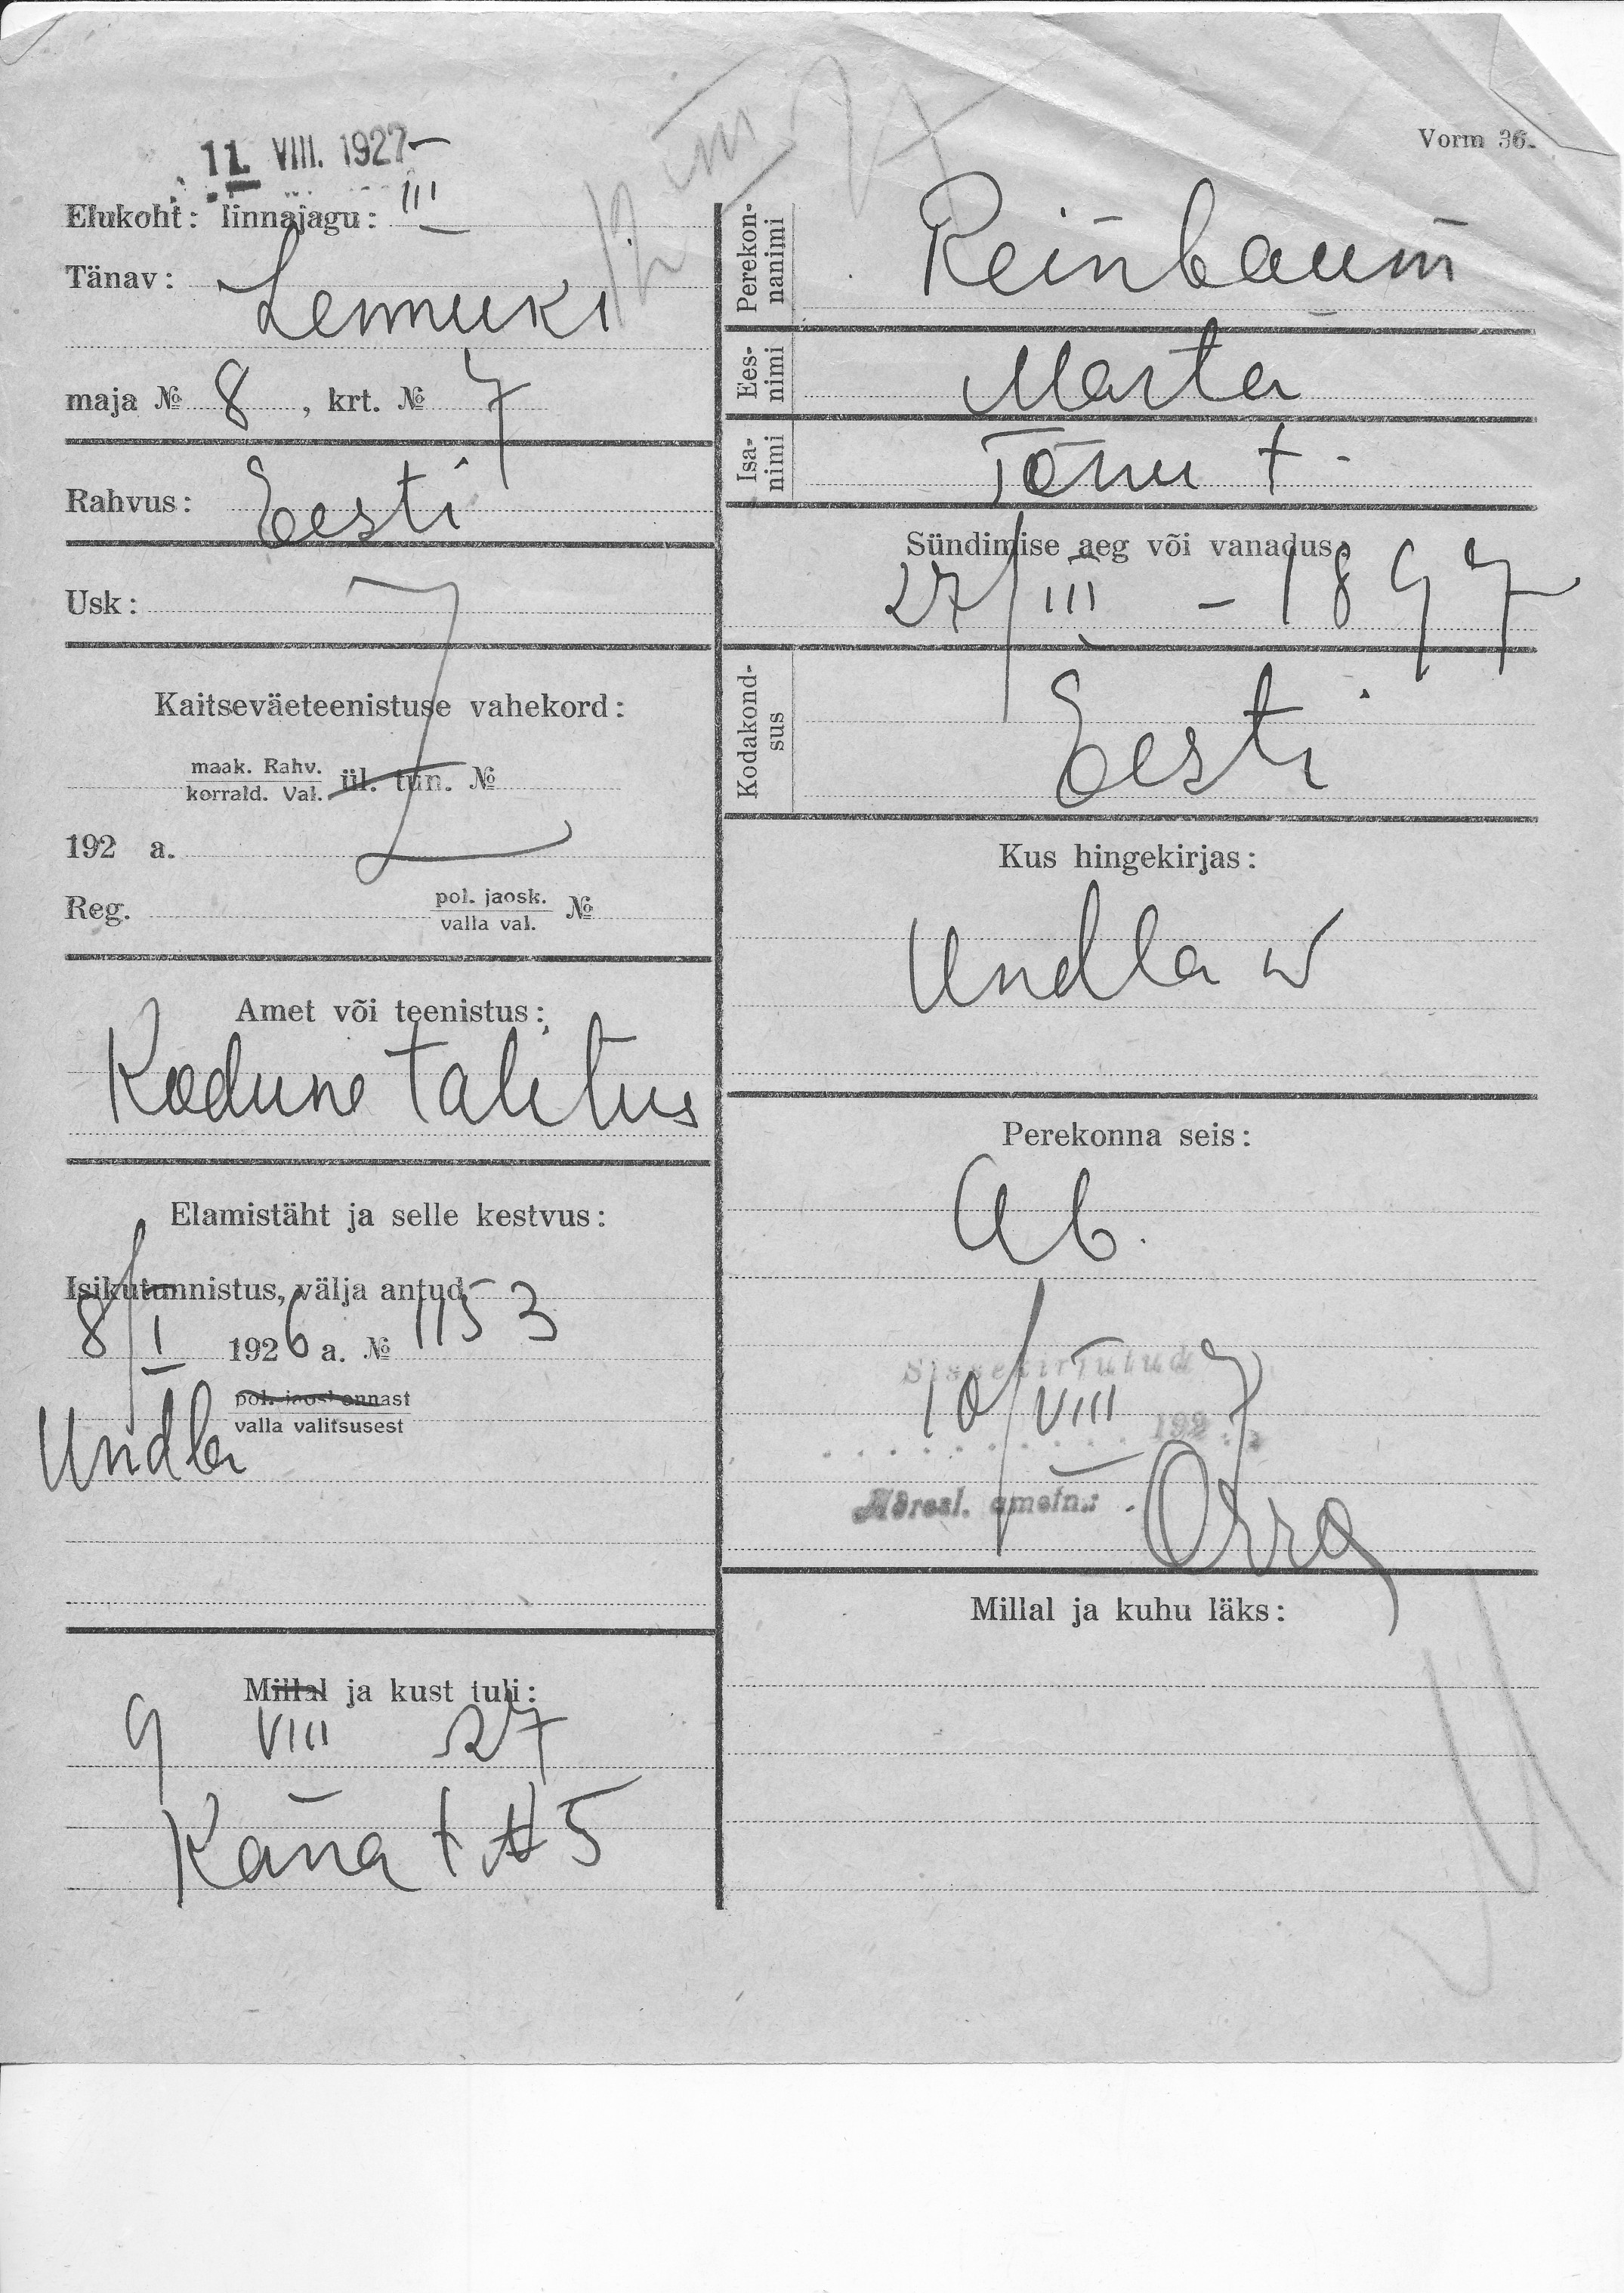 11. VIII. 1927
Vorm 36.
Elukoht: linnajagu: III
Tänav: Lennuki
maja № 8, krt. № 7
Rahvus: Eesti
Usk:
Kaitseväeteenistuse vahekord:
maak. Rahv.
korrald. Val. ül. tun. №
192 a.
Reg. pol. jaosk.
valla val. №
Amet või teenistus:
Kodune talitus
Elamistäht ja selle kestvus:
Isikutunnistus, välja antud
8/I 1926 a. № 1153
pol. jaoskonnast
Undla valla valitsusest
Millal ja kust tuli:
9 VIII 27
5
Perekon-
nanimi
Reinbaum
Ees-
nimi
Marta
Isa-
nimi
Tõnu t.
Sündimise aeg või vanadus:
27/III - 1897
Kodakond-
sus
Eesti
Kus hingekirjas:
Undla w
Perekonna seis:
Ab.
Sissekirjutud
10/VIII 1927
Adresl. ametn.:
Millal ja kuhu läks: